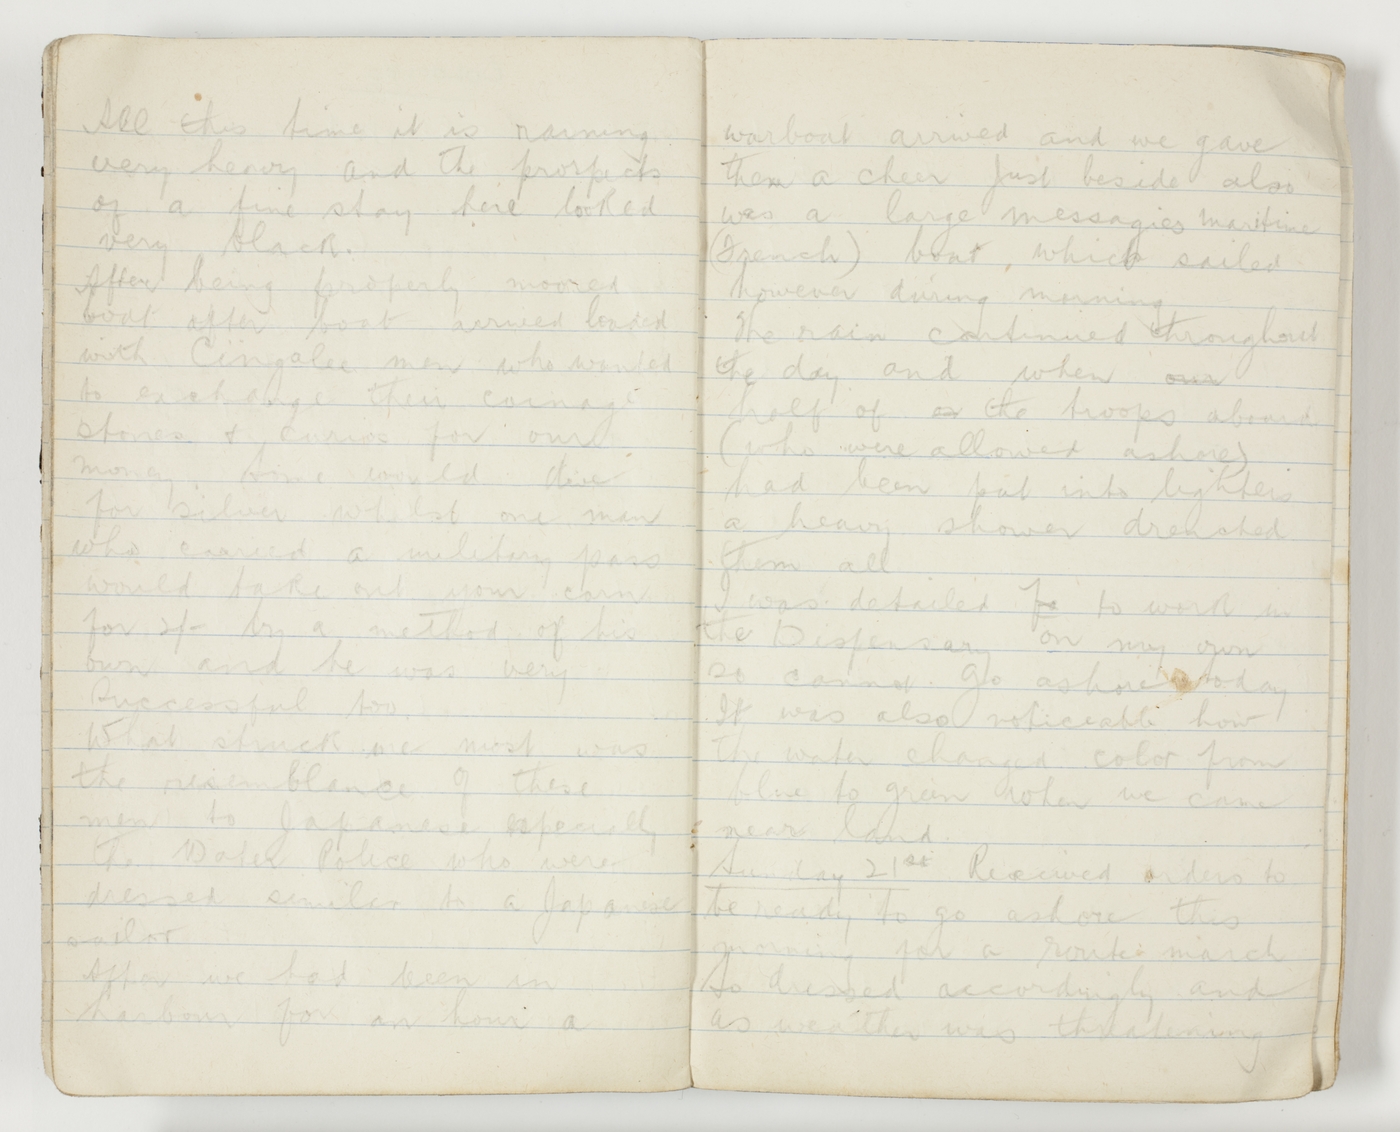 All this time it is raining
very heavy and the prospects
of a fine stay here looked
very black.
After being properly moored
boat after boat arrived loaded
with Cingalee men who wanted
to exchange their coinage
stones & curios for our
money. Some would dive
for silver whilst one man
who carried a military pass
would take out your coin
for 2/- by a method of his
own and he was very
successful too.
What struck me most was
the resemblance of these
men to Japanese especially
the Water Police who were
dressed similar to a Japanese
sailor
After we had been in
harbour for an hour a
warboat arrived and we gave
them a cheer Just beside also
was a large messagies maritime
(French) boat, which sailed
however during morning
The rain continued throughout
the day and when our
half of the troops aboard
(who were allowed ashore)
had been put into lighters
a heavy shower drenched
them all
I was detailed to work in
the Dispensary on my own
so cannot go ashore today
It was also noticeable how
the water changed color from
blue to green when we came
near land.
Sunday 21st Received orders to
be ready to go ashore this
morning for a route march
So dressed accordingly and
as weather was threatening